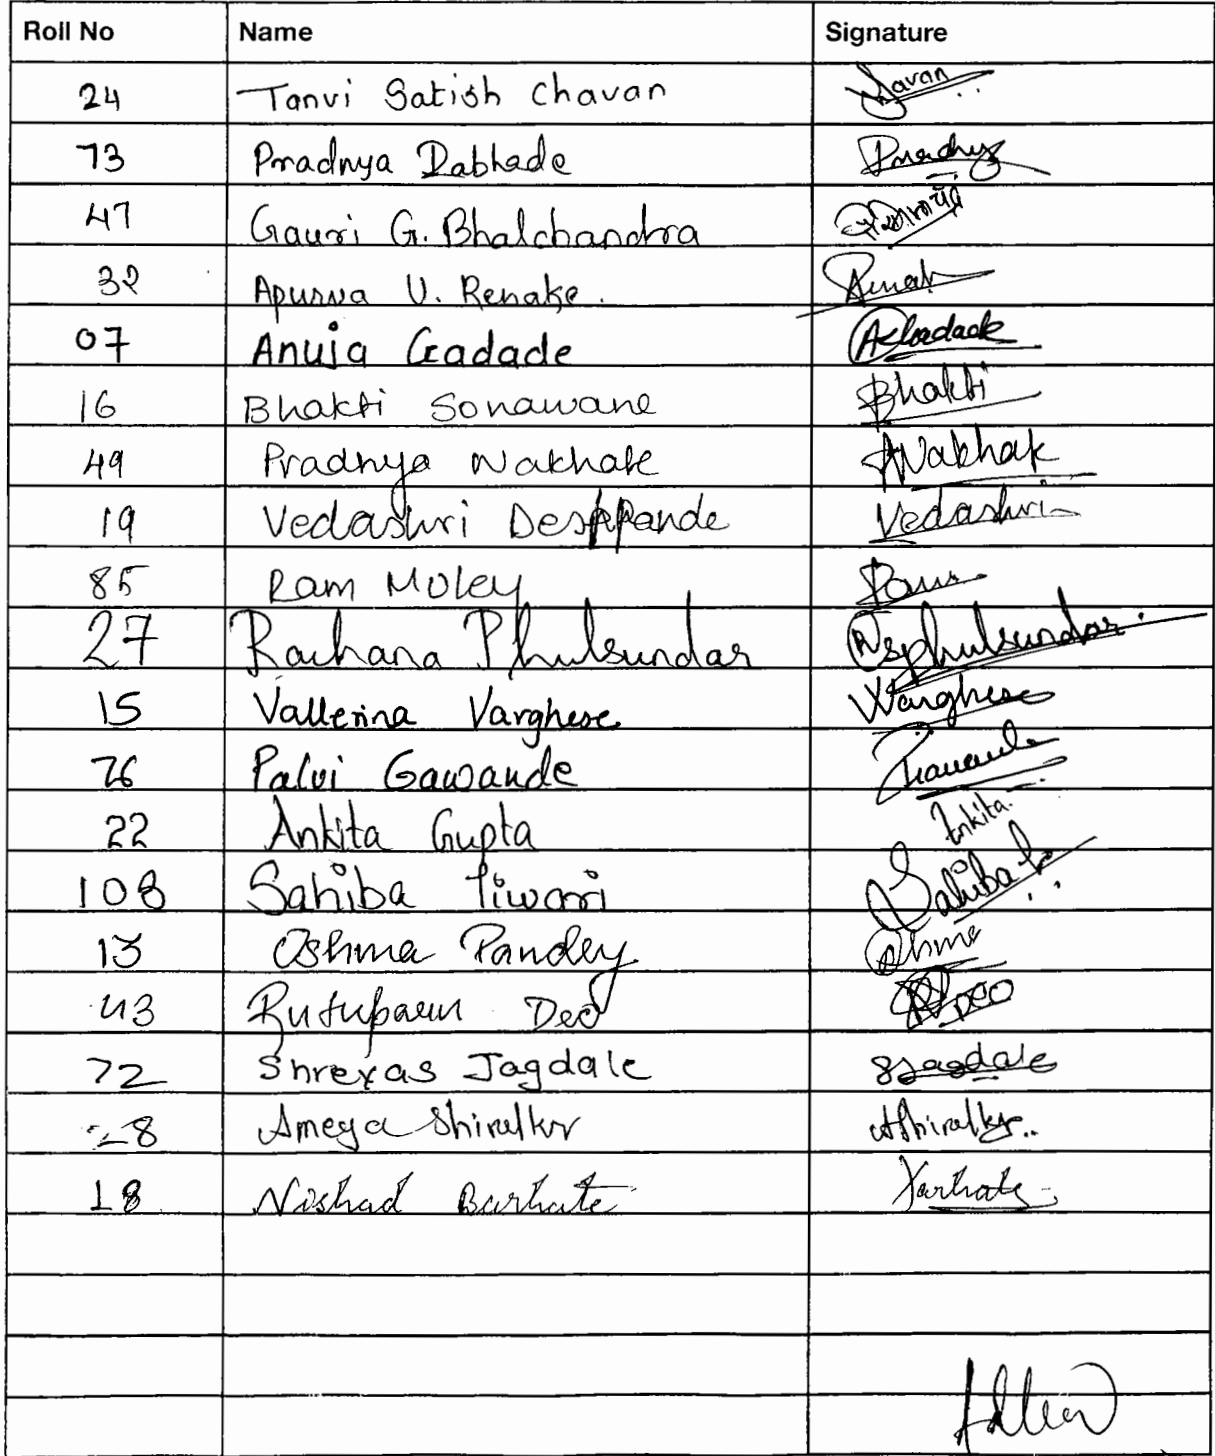 Roll No Name Signature
24 Tanvi Satish Chavan
73 Pradnya Dabhade Pradnya
47 Gauri G. Bhalchandra
32 Apurva V. Renake.
07 Anuja Gadade AGadade
16 Bhakti Sonawane Bhakti
49 Pradnya Nakhate
19 Vedashri Deshpande Vedashri
85 Ram Moley Ram
27 Rachana Phulsundar Rsphulsundar.
15 Vallerina Varghese Varghese
76 Palvi Gawande
22 Ankita Gupta Ankita
108 Sahiba Tiwari Sahiba
13 Oshma Pandey
43 Rutuparn Deo Deo
72 Shreyas Jagdale SJagdale
28 Ameya Shiralkar AShiralkar
18 Nishad Barhate